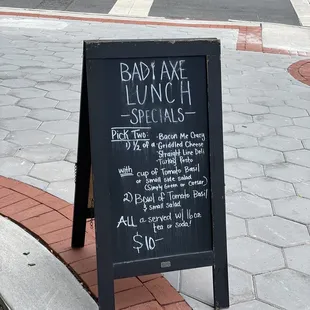 BAD AXE
LUNCH
-SPECIALS-
Pick Two:
1) ½ of a
- Bacon Me Crazy
- Griddled Cheese
- Straight Line Deli
- Turkey Pesto
with cup of Tomato Basil
or small side salad
(Simply Green or Caesar)
2) Bowl of Tomato Basil
& small Salad
All served w/ 16oz
tea or soda!
$10-